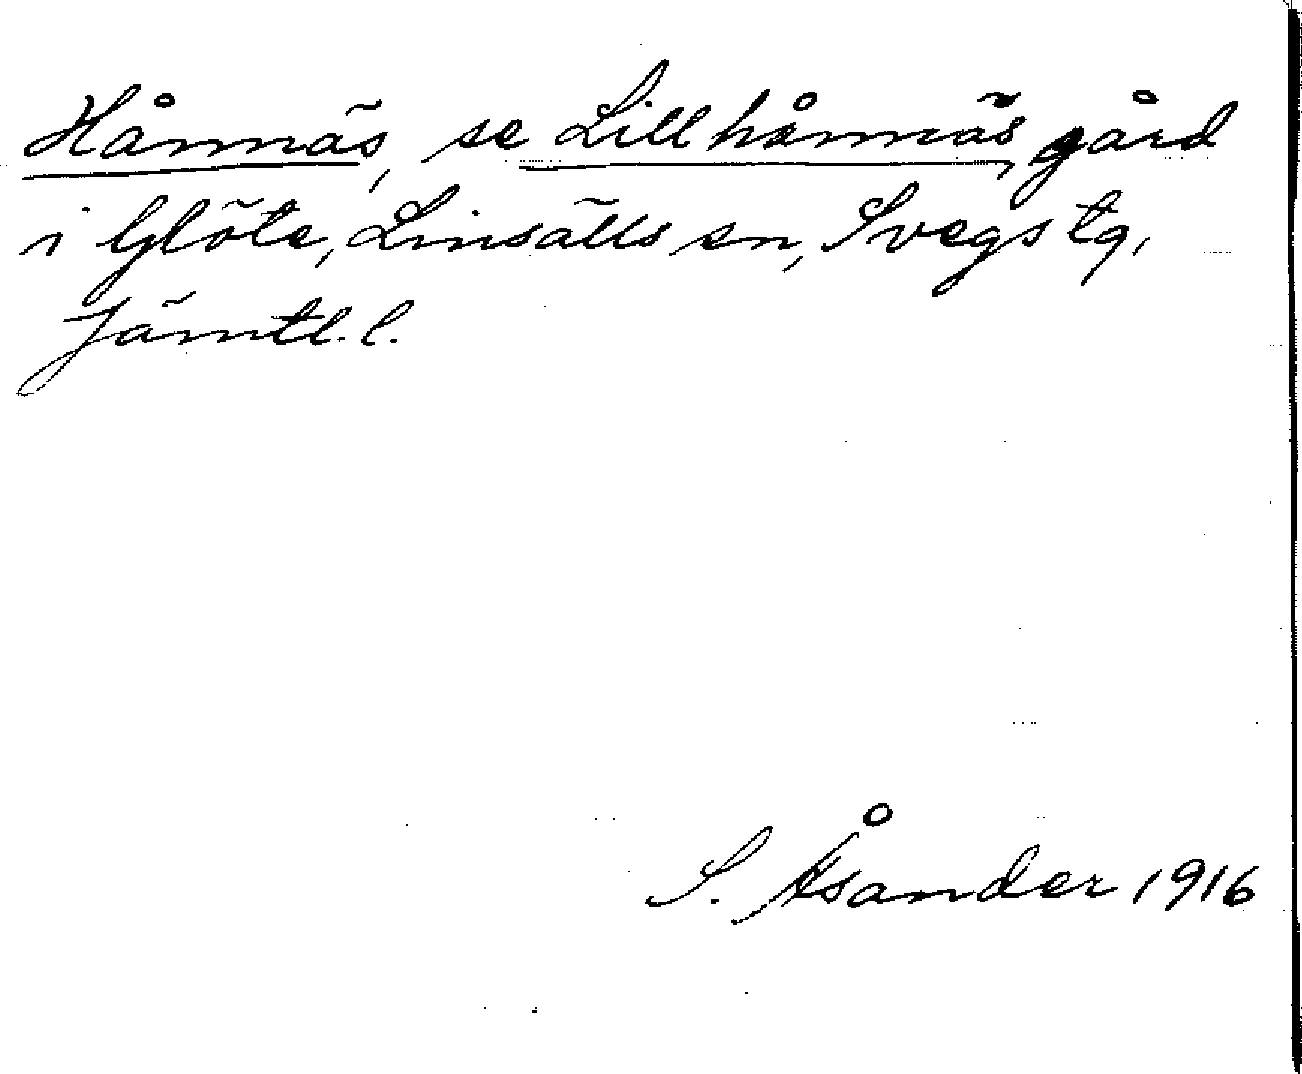 Hånnäs, se Lillhånnäs, gård
i Glöte, Linsälls sn, Svegs tg,
Jämtl. l.
S. Åsander 1916